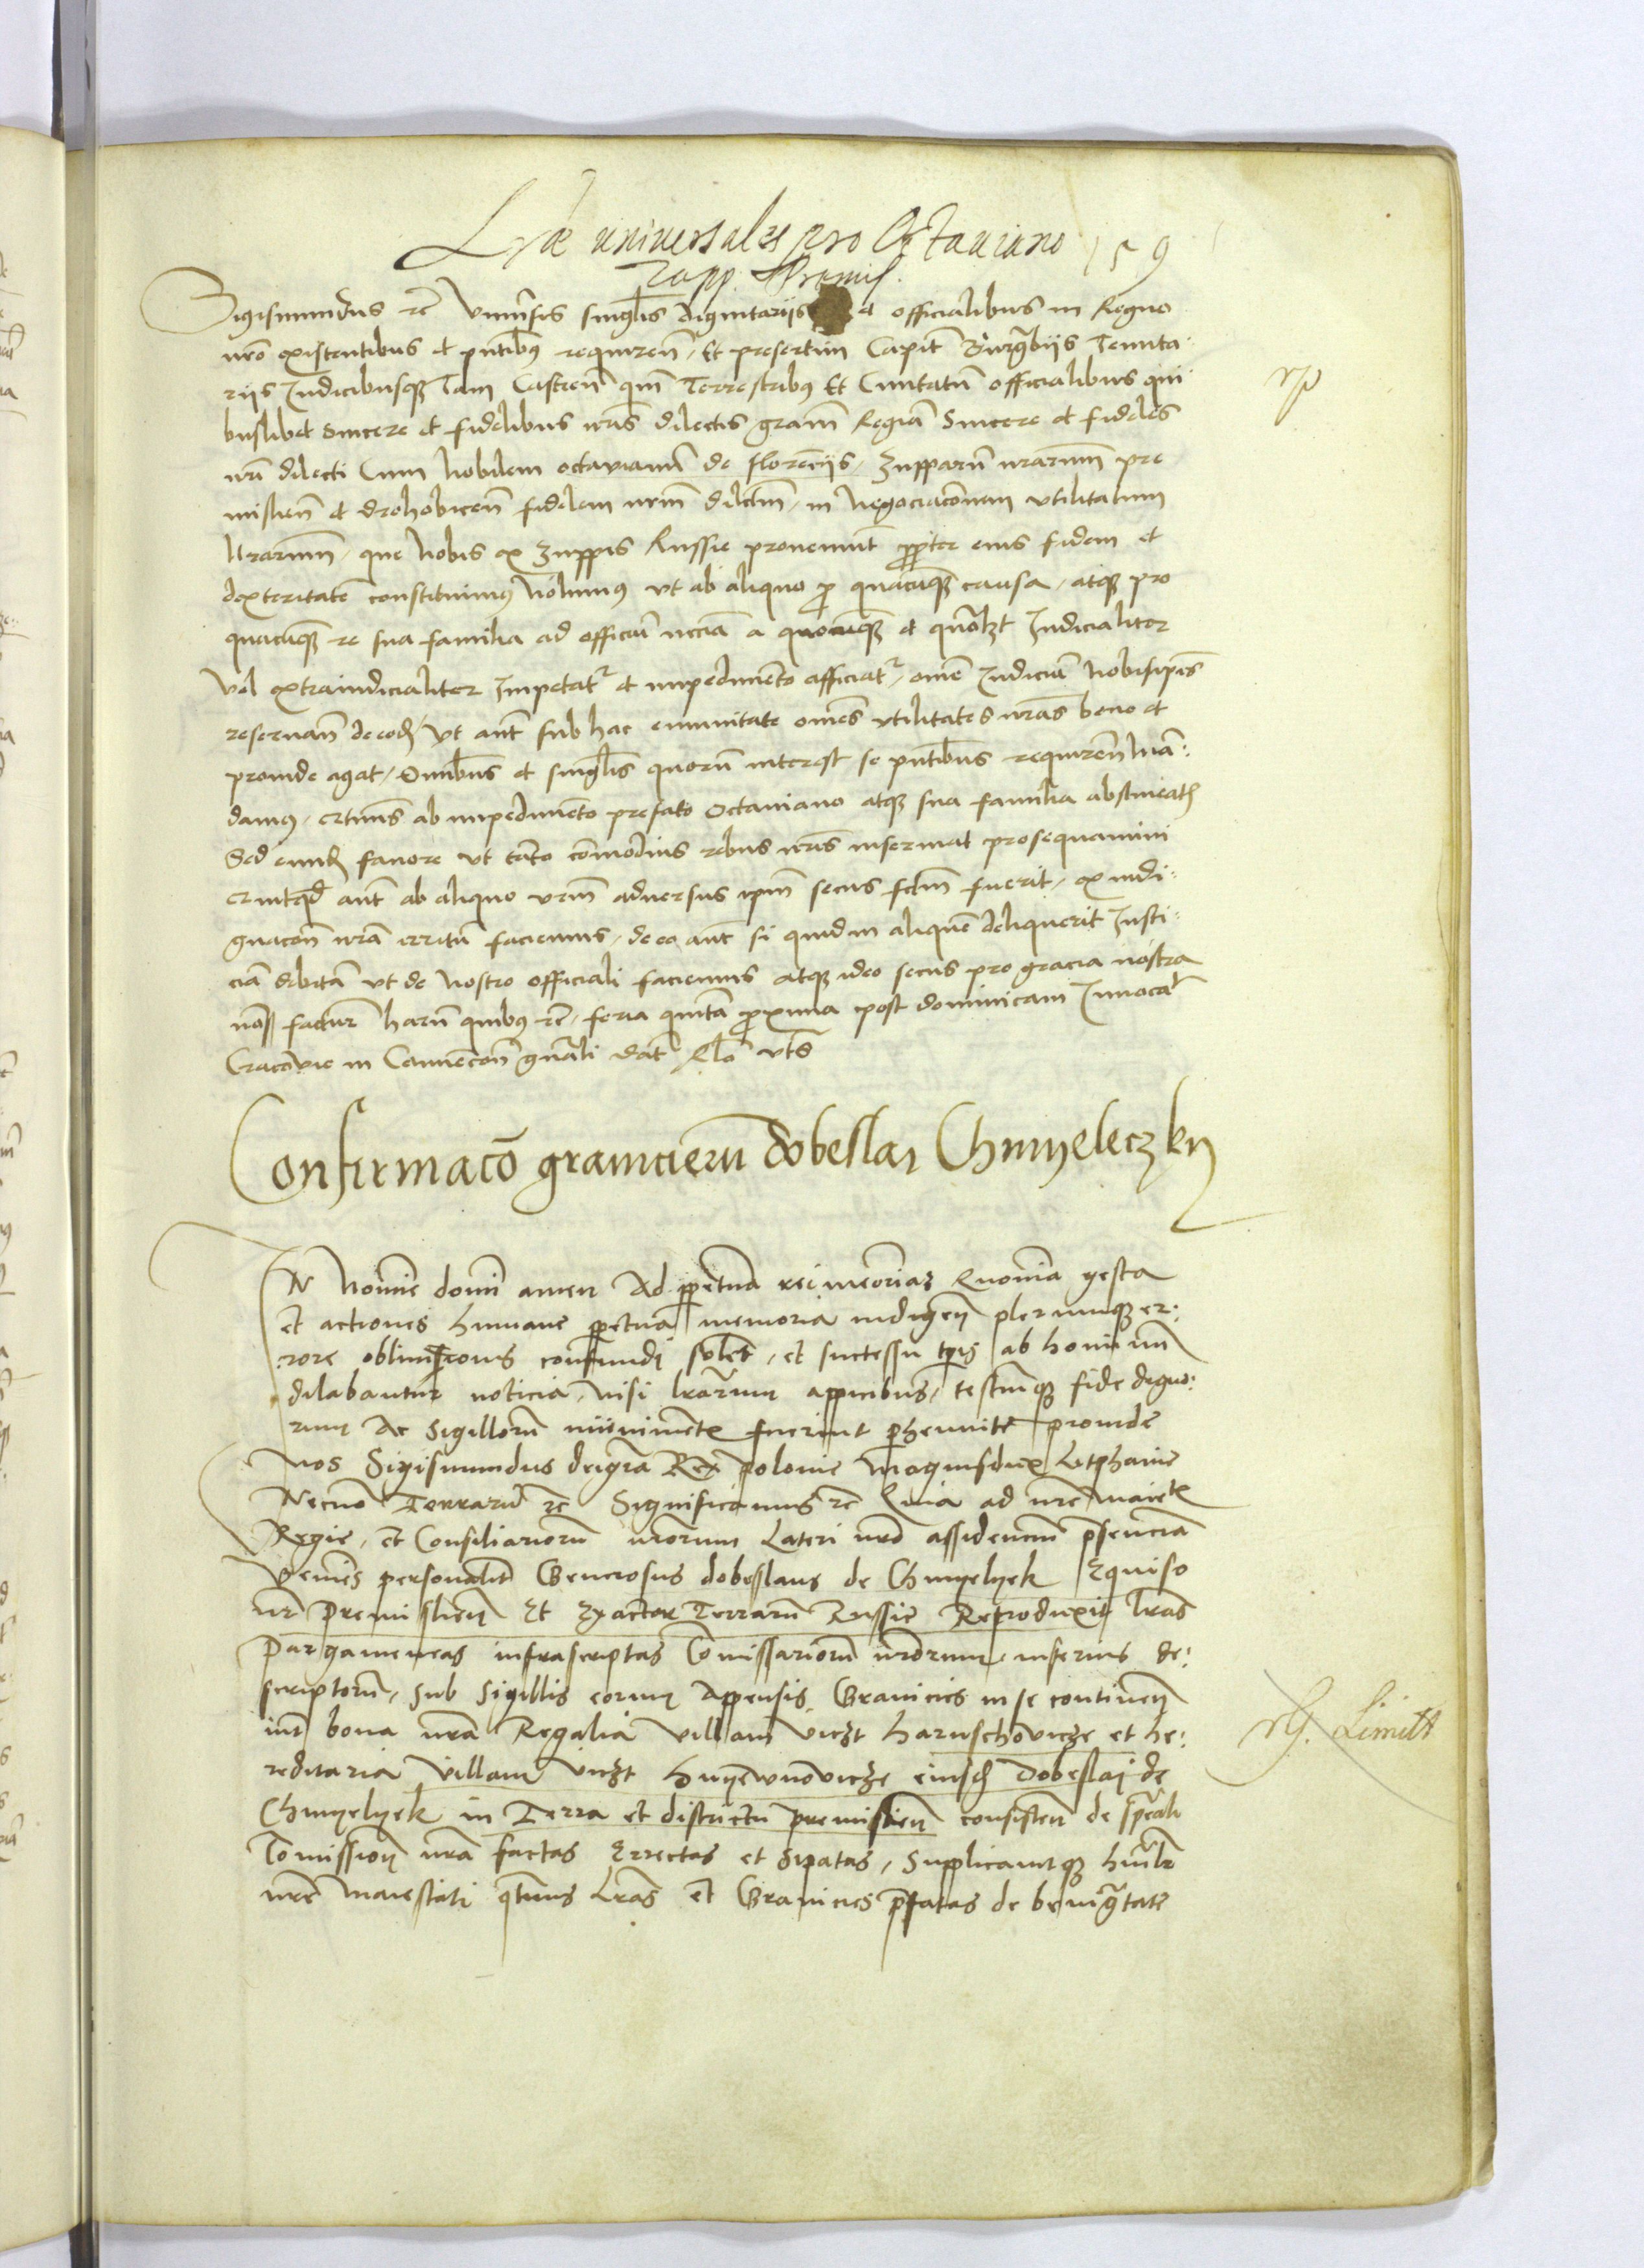 Lr̃æ universales pro Octauiano 159
Zupp. Premis.
Sigismundus rc̃ Vniũsis singlis̃ dignitariis et officialibus in Regno
nrõ existentibus et pn̄tibus requirend̃ Et presertim Capit̃ Burgrabiis Tenuta
riis Iudicibusq₃ Tam Castren̄ qm̃ Terrestribus Et Ciuitatũ officialibus qui
buslibet sincere et fidelibus nrĩs dilectis gram̃ Regiã Sincere et fideles
nrĩ dilecti Cum Nobilem octavianũ de florẽciis, Zupparũ nrarum̃ pre
mislien̄ et drohobicen̄ fidelem nrm̃ dilctm̃, in Negociacõnem vtilitatum
Nrarum̃, que Nobis ex Zuppis Russie proueniunt ppter eius fidem et
dexteritatẽ constituimus Nolumus vt ab aliquo p̱ quacũq₃ causa, atq₃ pro
quacũq₃ re sua familia ad officiũ a quocũq₃ et Iudicialiter
Vel extraiudicialiter Impetatr̃ et impedimento afficiatr̃, omẽ Iudiciũ Nobisipis̃
reseruan̄ de eod̃, Vt aut̃ sub hac emunitate omẽs vtilitates nrãs bene et
prouide agat, Omĩbus et singlĩs quorũ interest se pn̄tibus requiren̄ Mã:
damus, ab impedimento prefato Octauiano atq₃ sua familia abstineatis
Sed eund̃ fauore vt tãto cõmodius rebus nrĩs inseruiat prosequamini
aut̃ ab aliquo vrm̃ aduersus ipm̃ secus fctm̃ fuerit, ex indi:
gnacõn nrã irritũ faciemus, de eo aut̃ si quid in aliquẽ deliquerit Iusti:
ciã debitã vt de Nostro officiali faciemus atq₃ ideo secus pro gracia nostra
nõ factur̃ Harũ quibus rc̃, feria quĩta proxima post dominicam Inuocãt
Cracovie in Conuẽcõn gñali dat̃ Rlõ vts̃
Confirmacõ graniciem dobeslai Chmyeleczky
IN Nomĩe domĩ amen Ad ppetuã rei meõriaz Quoniã gesta
et actiones humane ppetua memoria indigen̄ plerumq₃ er:
rore obliuionis confundi solẽt, et successu tp̃is ab hominũ
dilabantur noticia, Nisi lrãrum appicibus, testiumq₃ fide digno:
rum Ac Sigillorũ munimento fuerint perhennite proinde
Nos Sigismundus dei grã Rex polonie Magnusdux Lythuanie
Necnõ Terrarũ rc̃ Significamus rc̃ Quia ad nrẽ maiet̃
Regie, et Consiliariorũ nrõrum Lateri nrõ assidencium p̃senciã
Veniẽs personalit̃ Generosus dobeslaus de Chmyelyek
Premislien̄ Et Exactor Terrarũ Russie Reproduxit lrãs
Pargameneas infrascriptas Comissariorũ nrõrum, inferius de:
scriptorũ, sub sigillis eorum Appensis Granicies in se continen̄
int̃ bona nrã Regalia villam vicz̃t Haruschovicze et he:
reditaria villam vicz̃t Hnyewnovicze eiusd̃ Dobeslai de
Chmyelyek in Terra et districtu premislien̄ consisten̄ de spẽali
Comission̄ nrã factas Errectas et Sipatas, supplicauitq₃ humilr̃
nrẽ Maiestati qt̃mus Lrãs et Granicies p̃fatas de benignitate
Limitt